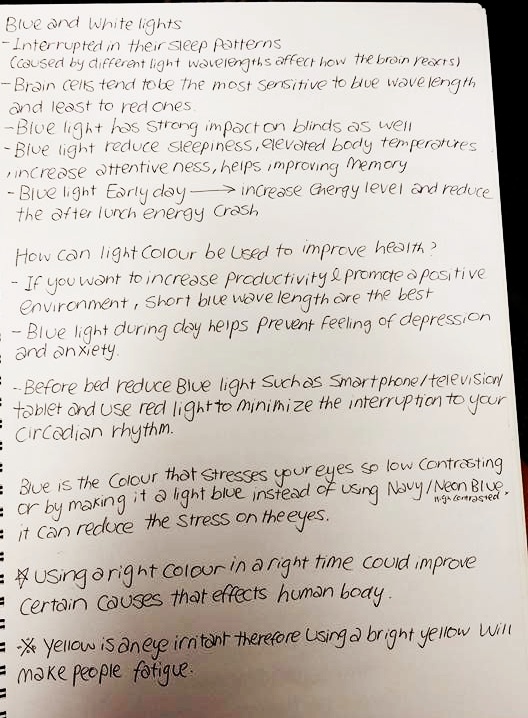 Blue and White lights
- Interrupted in their sleep patterns
(caused by different light wavelengths affect how the brain reacts)
- Brain cells tend to be the most sensitive to blue wavelength
and least to red ones.
- Blue light has strong impact on blinds as well
- Blue light reduce sleepiness, elevated body temperatures
, increase attentive ness, helps improving memory
- Blue light Early day → increase energy level and reduce
the after lunch energy crash
How can light colour be used to improve health?
- If you want to increase productivity & promote a positive
environment, short blue wave length are the best
- Blue light during day helps prevent feeling of depression
and anxiety.
- Before bed reduce Blue light such as smartphone/television/
tablet and use red light to minimize the interruption to your
circadian rhythm.
Blue is the colour that stresses your eyes so low contrasting
or by making it a light blue instead of using Navy/Neon Blue,
high contrasted
it can reduce the stress on the eyes.
☆ using a right colour in a right time could improve
certain causes that effects human body.
-※ Yellow is an eye irritant therefore using a bright yellow will
make people fatigue.